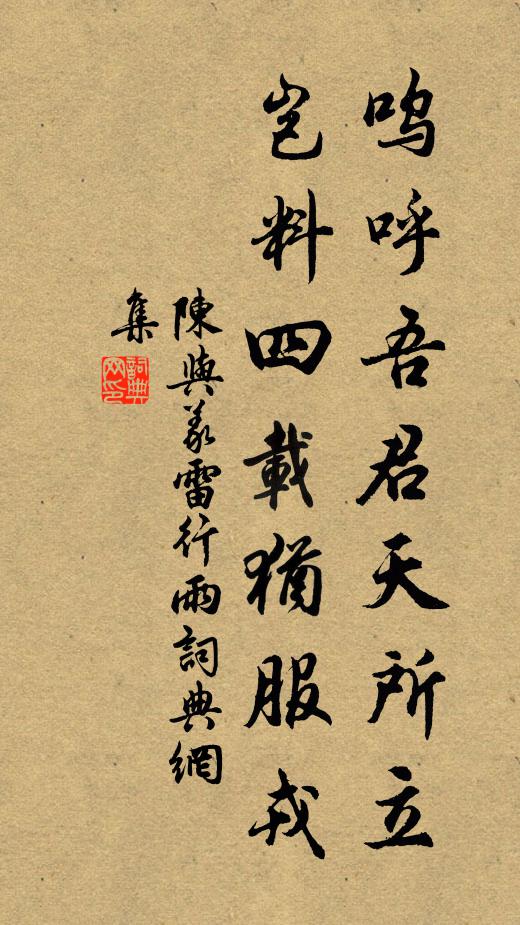 嗚呼吾君天所立
豈料四載猶服戎
陳與義雷行雨詞典網
集
詞典
网印